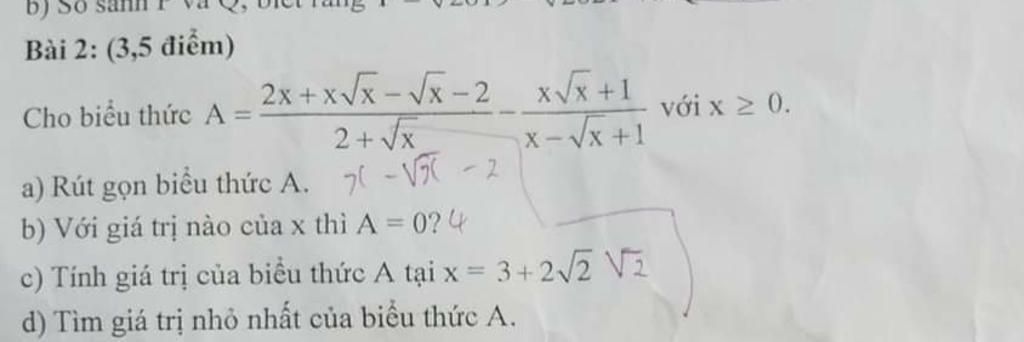 b) So sánh P và Q, biết rằng
Bài 2: (3,5 điểm)
Cho biểu thức A = (2x + x√x − √x − 2)/(2 + √x) − (x√x + 1)/(x − √x + 1) với x ≥ 0.
a) Rút gọn biểu thức A. x − √x − 2
b) Với giá trị nào của x thì A = 0? 4
c) Tính giá trị của biểu thức A tại x = 3 + 2√2 √2
d) Tìm giá trị nhỏ nhất của biểu thức A.